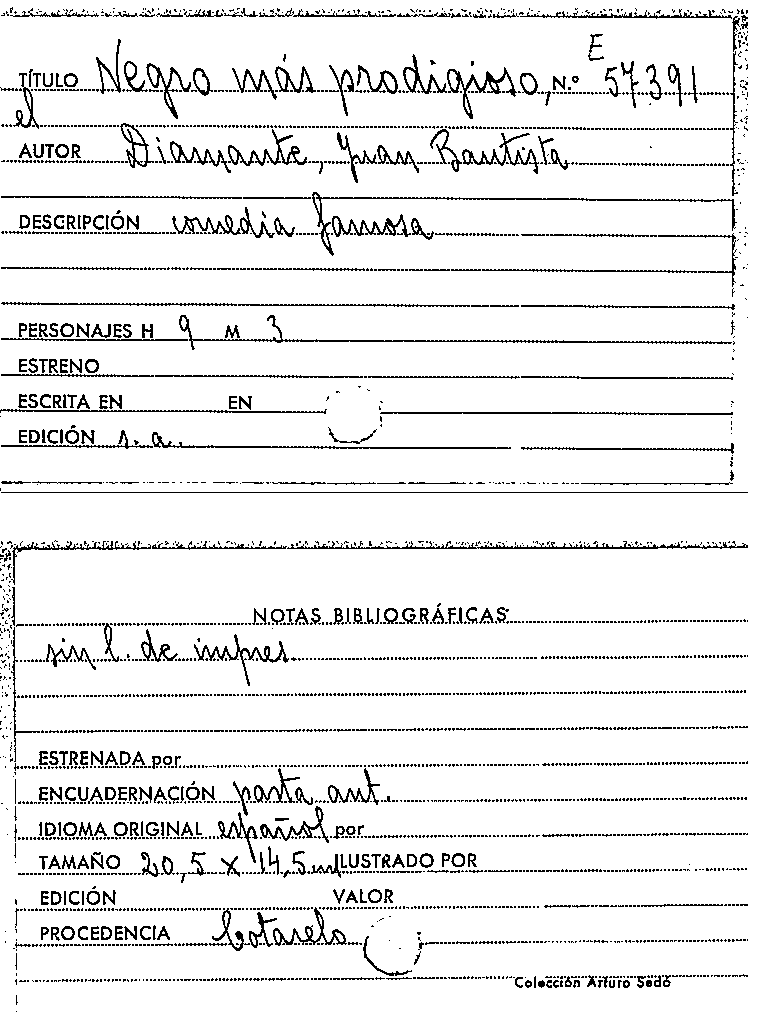 E
TÍTULO Negro más prodigioso, N.º 57391
el
AUTOR Diamante, Juan Bautista
DESCRIPCIÓN comedia famosa
PERSONAJES H 9 M 3
ESTRENO
ESCRITA EN EN
EDICIÓN s. a.
NOTAS BIBLIOGRÁFICAS
sin l. de impres.
ESTRENADA por
ENCUADERNACIÓN pasta ant.
IDIOMA ORIGINAL español por
TAMAÑO 20,5 x 14,5 cm ILUSTRADO POR
EDICIÓN VALOR
PROCEDENCIA Cotarelo
Colección Arturo Sedó